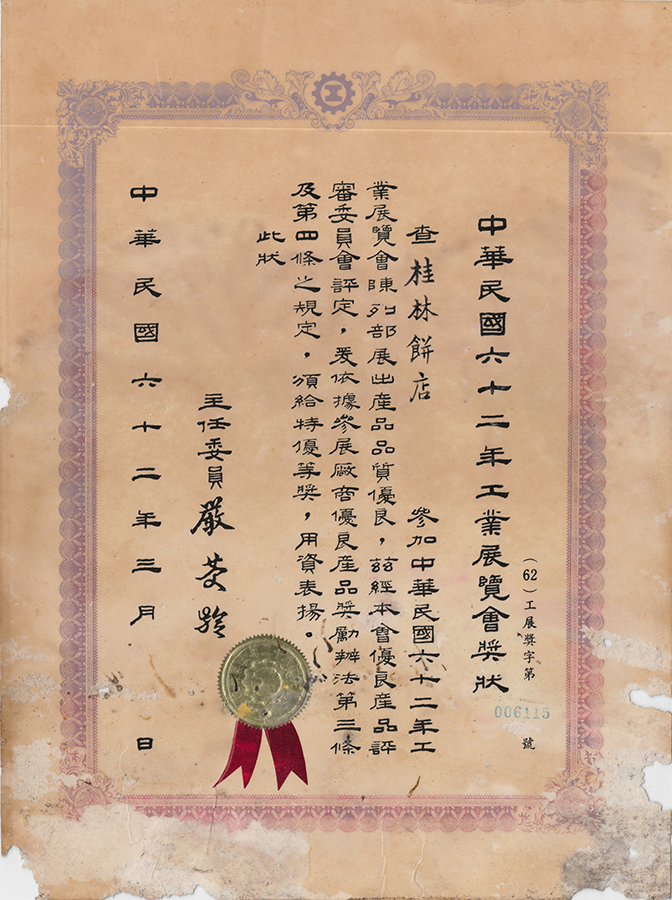 中華民國六十二年工業展覽會獎狀
（62）工展獎字第006115號
查桂林餅店參加中華民國六十二年工
業展覽會陳列部展出産品品質優良，茲經本會優良産品評
審委員會評定，爰依據參展廠商優良産品獎勵辦法第三條
及第四條之規定，頒給特優等獎，用資表揚。
此狀
主任委員嚴
中華民國六十二年三月　日